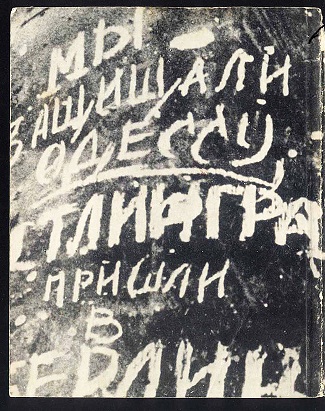 МЫ
ЗАЩИЩАЛИ
ОДЕССУ,
СТЛИНГРА
ПРИШЛИ
В
ЕРЛИН